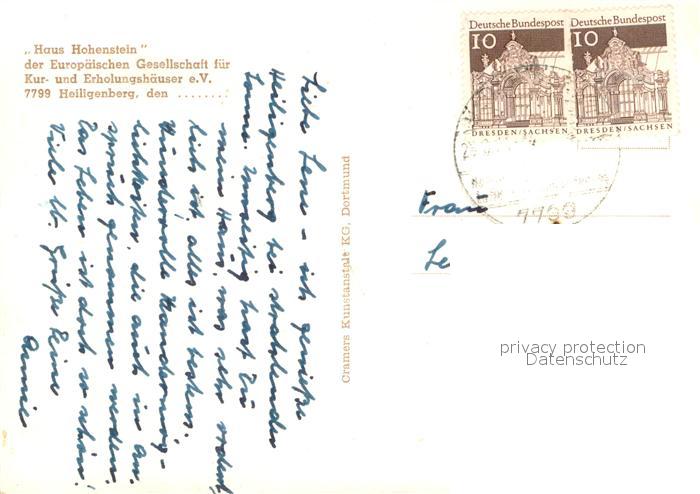 „Haus Hohenstein"
der Europäischen Gesellschaft für
Kur- und Erholungshäuser e.V.
7799 Heiligenberg, den ........
Liebe Lene – ich genieße
Heiligenberg bei strahlender
Sonne. hast Du
mein Haus, was sehr
lich ist, alles ist bestens.
Wundervolle Wandermög-
lichkeiten, die auch in An-
spruch genommen werden.
Das Leben ist doch so schön!
Viele lb. Grüße Deine
Annie
Cramers Kunstanstalt KG, Dortmund
Deutsche Bundespost
10
DRESDEN/SACHSEN
Deutsche Bundespost
10
DRESDEN/SACHSEN
7799
Frau
Le
privacy protection
Datenschutz